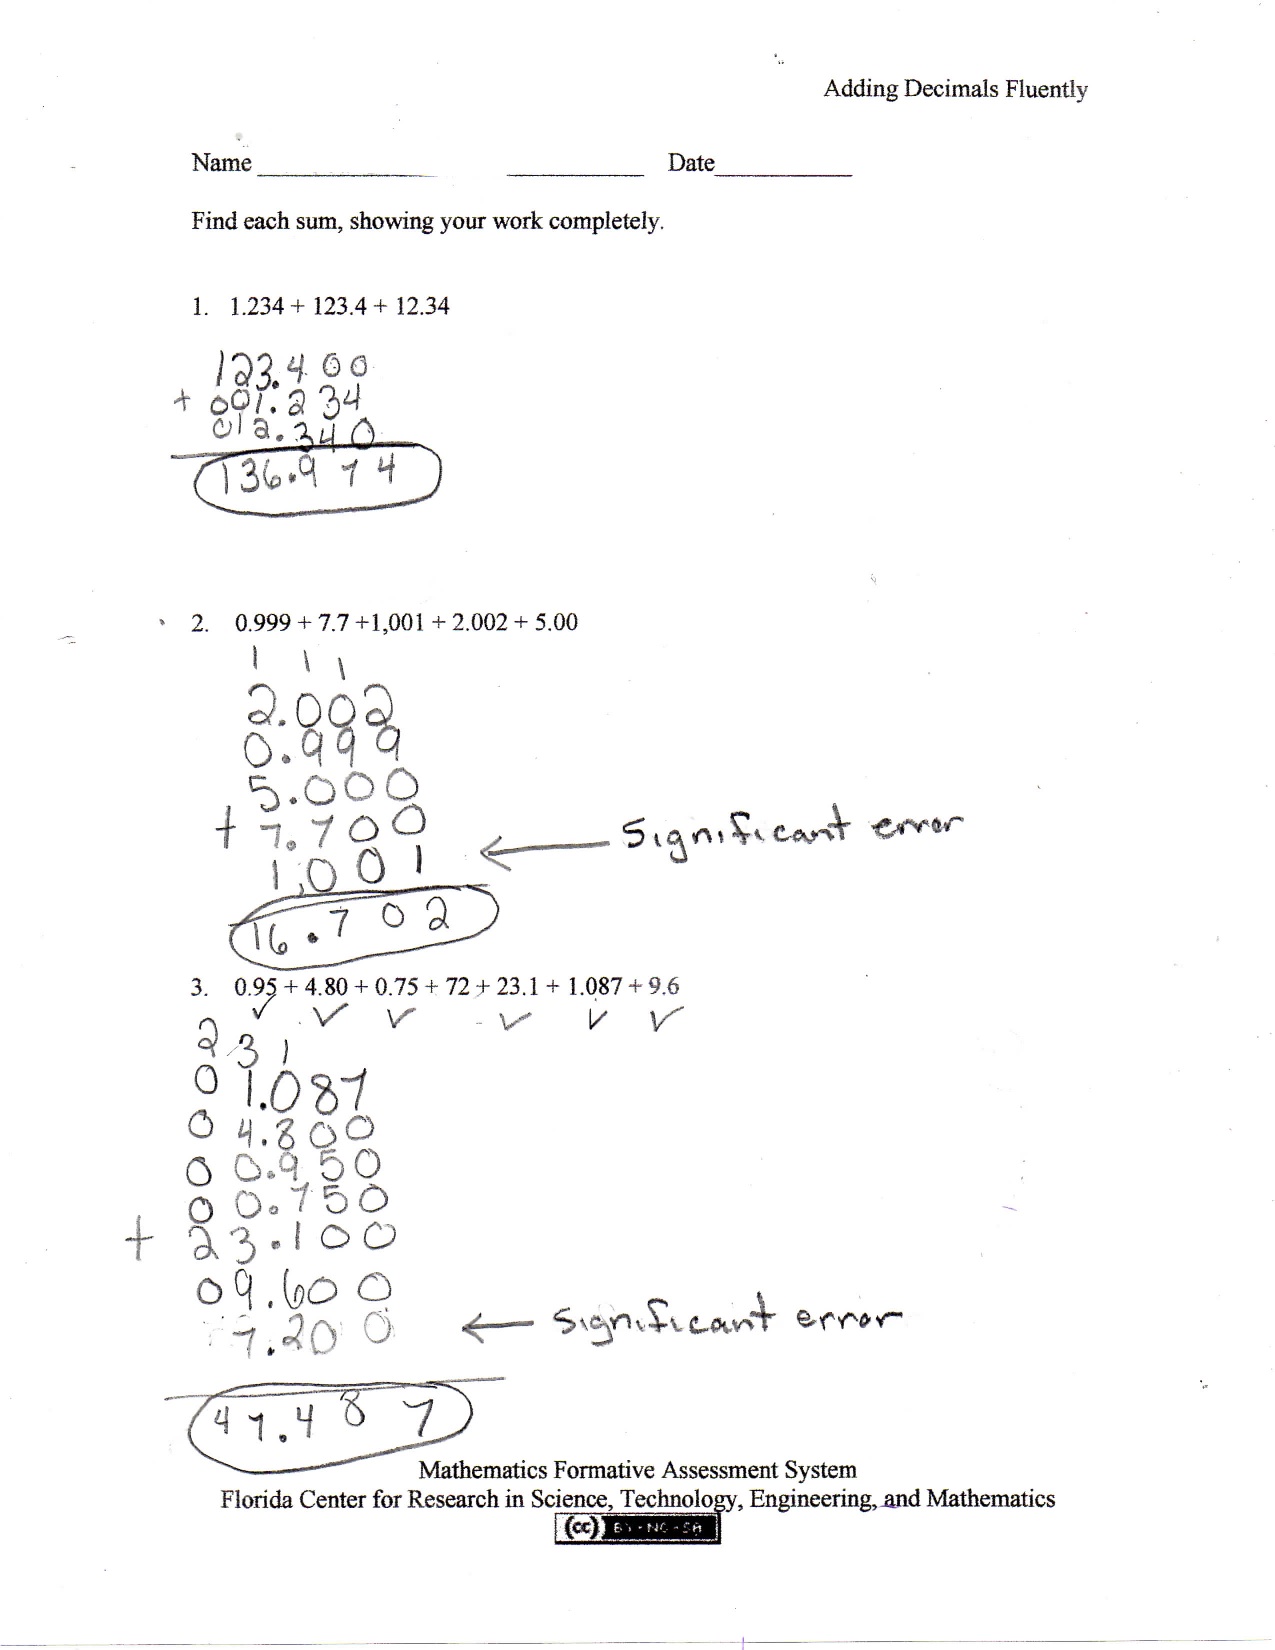 Adding Decimals Fluently
Name Date
Find each sum, showing your work completely.
1. 1.234 + 123.4 + 12.34
123.400
+ 001.234
012.340
136.974
2. 0.999 + 7.7 +1,001 + 2.002 + 5.00
1 1 1
2.002
0.999
5.000
+ 7.700
1,001 ← significant error
16.702
3. 0.95 + 4.80 + 0.75 + 72 + 23.1 + 1.087 + 9.6
✓ ✓ ✓ ✓ ✓ ✓
2 3 1
01.087
04.800
00.950
00.750
+ 23.100
09.600
7.200 ← significant error
47.487
Mathematics Formative Assessment System
Florida Center for Research in Science, Technology, Engineering, and Mathematics
(cc) BY - NC - SA